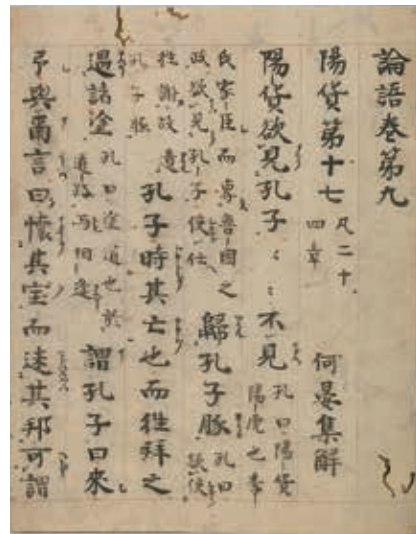 論語卷第九
陽貨第十七 凡二十四章 何晏集解
陽貨欲見孔子〻〻不見 孔曰陽貨陽虎也季
氏家臣而專魯國之政欲見孔子使仕 歸孔子豚 孔曰欲使
往謝故遺孔子豚 孔子時其亡也而往拜之
遇諸塗 孔曰塗道也於道路与相逢 謂孔子曰來
予與爾言曰懷其宝而迷其邦可謂